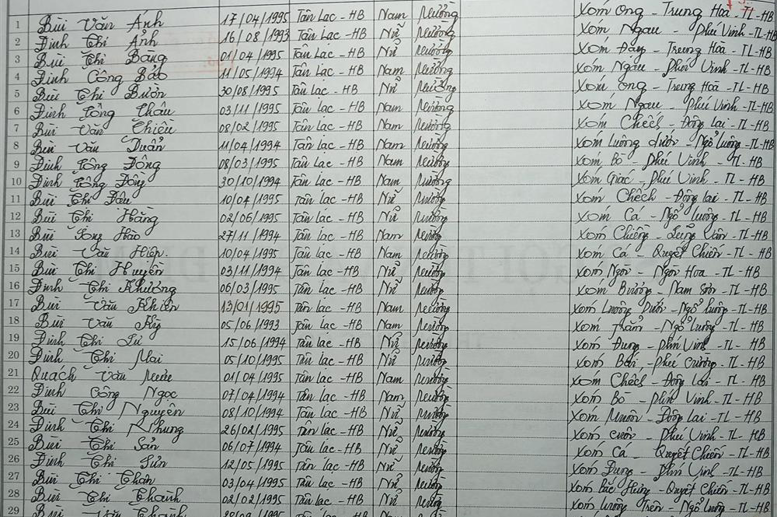 1 Bùi Văn Ánh 17/04/1995 Tân Lạc - HB Nam Mường Xóm Ong - Trung Hoà - TL - HB
2 Đinh Thị Ảnh 16/08/1993 Tân Lạc - HB Nữ Mường Xóm Ngau - Phú Vinh - TL - HB
3 Bùi Thị Bằng 01/04/1995 Tân Lạc - HB Nữ Mường Xóm - Trung Hoà - TL - HB
4 Đinh Công Bảo 11/05/1994 Tân Lạc - HB Nam Mường Xóm Ngau - Phú Vinh - TL - HB
5 Bùi Thị 30/08/1995 Tân Lạc - HB Nữ Mường Xóm Ong - Trung Hoà - TL - HB
6 Đinh Công 03/11/1995 Tân Lạc - HB Nam Mường Xóm Ngau - Phú Vinh - TL - HB
7 Bùi Văn 08/02/1995 Tân Lạc - HB Nam Mường Xóm Chếch - Đông Lai - TL - HB
8 Bùi Văn 11/04/1994 Tân Lạc - HB Nam Mường Xóm Luông Dưới - Ngổ Luông - TL - HB
9 Đinh Công Đông 08/03/1995 Tân Lạc - HB Nam Mường Xóm Bò - Phú Vinh - TL - HB
10 Đinh Công 30/10/1994 Tân Lạc - HB Nam Mường Xóm Giác - Phú Vinh - TL - HB
11 Bùi Thị 10/04/1995 Tân Lạc - HB Nữ Mường Xóm Chếch - Đông Lai - TL - HB
12 Bùi Thị Hằng 02/06/1995 Tân Lạc - HB Nữ Mường Xóm Cá - Ngổ Luông - TL - HB
13 Bùi Hào 27/11/1994 Tân Lạc - HB Nam Mường Xóm - TL - HB
14 Bùi Văn Hiện 10/04/1995 Tân Lạc - HB Nam Mường Xóm Cá - Quyết Chiến - TL - HB
15 Bùi Thị Huyền 03/11/1994 Tân Lạc - HB Nữ Mường Xóm Ngòn - TL - HB
16 Đinh Thị Khương 06/03/1995 Tân Lạc - HB Nữ Mường Xóm Bương - Nam Sơn - TL - HB
17 Bùi Văn 13/01/1995 Tân Lạc - HB Nam Mường Xóm Luông Dưới - Ngổ Luông - TL - HB
18 Bùi Văn Kỳ 05/06/1993 Tân Lạc - HB Nam Mường Xóm - Ngổ Luông - TL - HB
19 Đinh Thị 15/06/1994 Tân Lạc - HB Nữ Mường Xóm - Phú Vinh - TL - HB
20 Đinh Thị Mai 05/10/1995 Tân Lạc - HB Nữ Mường Xóm - Phú Cường - TL - HB
21 Quách Văn 01/04/1995 Tân Lạc - HB Nam Mường Xóm Chếch - Đông Lai - TL - HB
22 Đinh Công Ngọc 07/04/1994 Tân Lạc - HB Nam Mường Xóm Bò - Phú Vinh - TL - HB
23 Bùi Thị Nguyên 08/10/1994 Tân Lạc - HB Nữ Mường Xóm - Đông Lai - TL - HB
24 Đinh Thị Nhung 26/02/1995 Tân Lạc - HB Nữ Mường Xóm - Phú Vinh - TL - HB
25 Bùi Thị 06/07/1994 Tân Lạc - HB Nữ Mường Xóm Cá - Quyết Chiến - TL - HB
26 Đinh Thị 12/05/1995 Tân Lạc - HB Nữ Mường Xóm - Phú Vinh - TL - HB
27 Bùi Thị 03/04/1995 Tân Lạc - HB Nữ Mường Xóm Bắc Hưng - Quyết Chiến - TL - HB
28 Bùi Thị Thanh 02/02/1995 Tân Lạc - HB Nữ Mường Xóm Luông Trên - Ngổ Luông - TL - HB
29 Bùi Văn